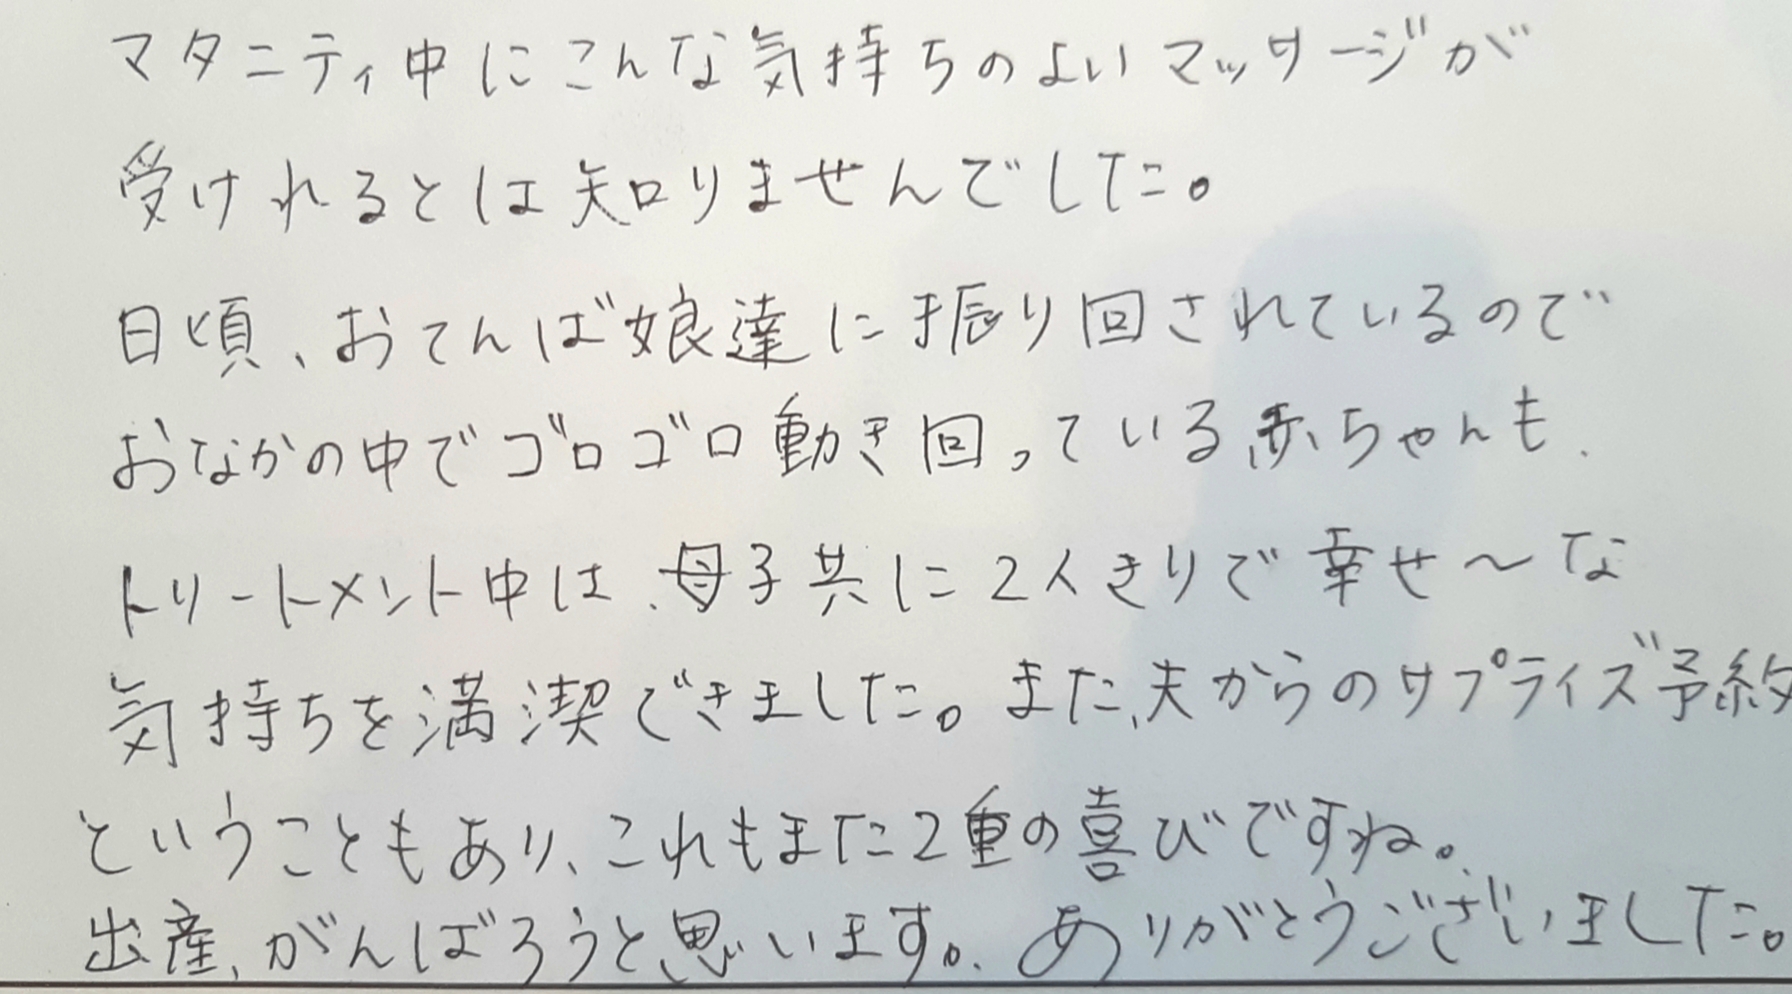 マタニティ中にこんな気持ちのよいマッサージが
受けれるとは知りませんでした。
日頃、おてんば娘達に振り回されているので
おなかの中でゴロゴロ動き回っている赤ちゃんも、
トリートメント中は、母子共に2人きりで幸せ〜な
気持ちを満喫できました。また、夫からのサプライズ予約
ということもあり、これもまた2重の喜びですね。
出産、がんばろうと思います。ありがとうございました。